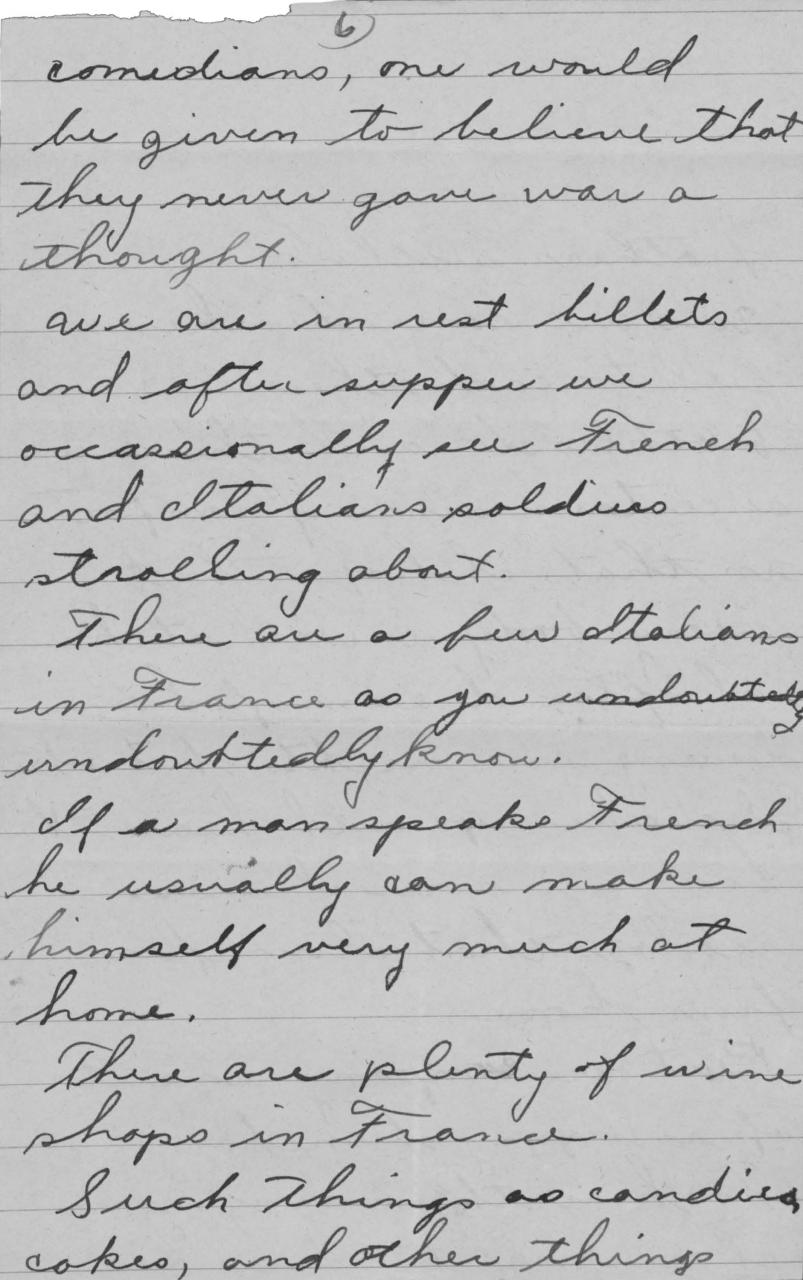 6)
comedians, one would
be given to believe that
they never gave war a
thought.
We are in rest billets
and after supper we
occassionally see French
and Italians soldiers
strolling about.
There are a few Italians
in France as you undoubtedly
undoubtedly know.
If a man speaks French
he usually can make
himself very much at
home.
There are plenty of wine
shops in France.
Such things as candies,
cakes, and other things